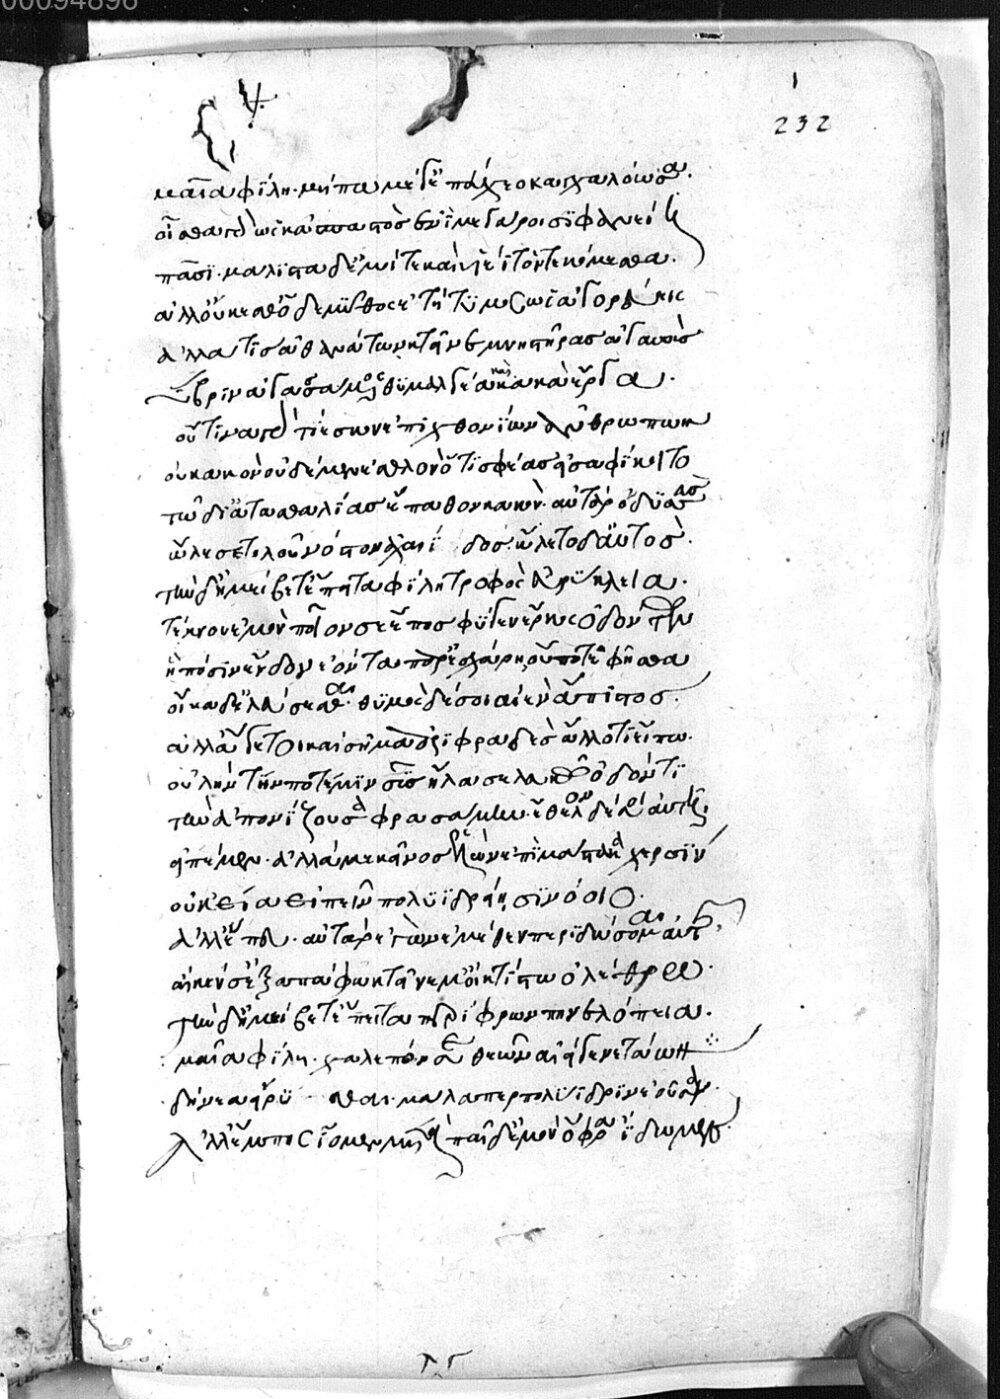 232
μαῖα φίλη· μήπω μέγ' ἐπεύχεο καγχαλόωσα.
οἶσθα γὰρ ὥς κ' ἀσπαστὸς ἐνὶ μεγάροισι φανείη
πᾶσι· μάλιστα δ' ἐμοί τε καὶ υἱέϊ τὸν τεκόμεσθα.
ἀλλ' οὐκ ἔσθ' ὅδε μῦθος ἐτήτυμος ὡς ἀγορεύεις
ἀλλά τις ἀθανάτων κτεῖνε μνηστῆρας ἀγαυοὺς
ὕβριν ἀγασσάμενος θυμαλγέα καὶ κακὰ ἔργα.
οὔτινα γὰρ τίεσκον ἐπιχθονίων ἀνθρώπων
οὐ κακὸν οὐδὲ μὲν ἐσθλὸν ὅτις σφέας εἰσαφίκοιτο
τῶ δι' ἀτασθαλίας ἔπαθον κακόν· αὐτὰρ ὀδυσσεὺς
ὤλεσε τηλοῦ νόστον ἀχαιΐδος. ὤλετο δ' αὐτός.
τὴν δ' ἠμείβετ' ἔπειτα φίλη τροφὸς εὐρύκλεια.
τέκνον ἐμὸν ποῖόν σε ἔπος φύγεν ἕρκος ὀδόντων
ἣ πόσιν ἔνδον ἐόντα παρ' ἐσχάρῃ οὔποτ' ἔφησθα
οἴκαδ' ἐλεύσεσθαι. θυμὸς δέ σοι αἰὲν ἄπιστος.
ἀλλ' ἄγε τοι καὶ σῆμα ἀριφραδὲς ἄλλό τι εἴπω.
οὐλὴν τήν ποτέ μιν σῦς ἤλασε λευκῶ ὀδόντι
τὴν ἀπονίζουσα φρασάμην. ἔθελον δέ σοι αὐτῇ
εἰπέμεν· ἀλλά με κεῖνος ἑλὼν ἐπὶ μάστακα χερσὶν
οὐκ εἴα εἰπεῖν πολυϊδρείῃσι νόοιο.
ἀλλ' ἕπευ. αὐτὰρ ἐγὼν ἐμέθεν περιδώσομαι αὐτῆς.
αἴ κέν σ' ἐξαπάφω κτεῖναί μ' οἰκτίστω ὀλέθρω.
τὴν δ' ἠμείβετ' ἔπειτα περίφρων πηνελόπεια.
μαῖα φίλη· χαλεπόν σε θεῶν αἰειγενετάων
δήνεα εἴρυσθαι. μάλα περ πολύϊδριν ἐοῦσαν.
ἀλλ' ἔμπης ἴομεν μετὰ παῖδ' ἐμὸν ὄφρα ἴδωμεν